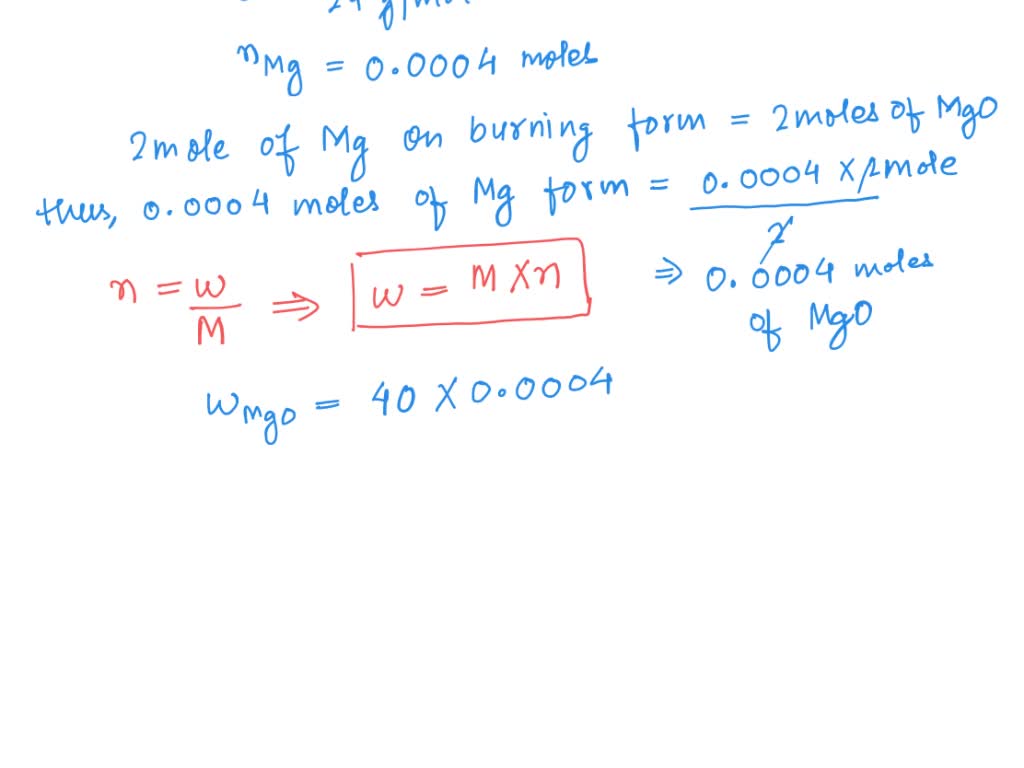 n Mg = 0.0004 moles
2mole of Mg on burning form = 2moles of MgO
thus, 0.0004 moles of Mg form = 0.0004 X 2mole
2
⇒ 0.0004 moles
of MgO
n = w/M ⇒ w = M X n
W MgO = 40 X 0.0004